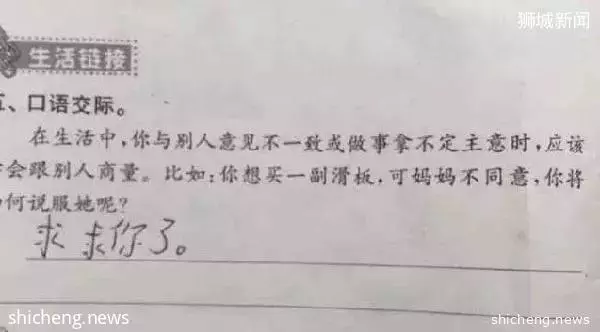 狮城新闻
生活链接
五、口语交际。
在生活中,你与别人意见不一致或做事拿不定主意时,应该
学会跟别人商量。比如:你想买一副滑板,可妈妈不同意,你将
如何说服她呢?
求求你了。
shicheng.news
shicheng.news